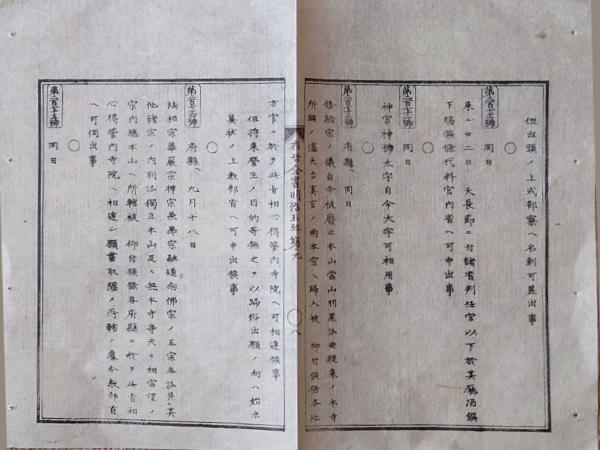 但出頭ノ上式部寮ヘ名刺可差出事
〇
第二百七十一號 同日
來ル廿二日 天長節ニ付諸省判任官以下於其廳酒饌
下賜候條代料宮内省ヘ可申出事
〇
第二百七十二號 同日
自今大字可相用事
〇
第二百七十三號 府縣 同日
修驗宗ノ儀自今被廢止本山當山羽黒派共從來ノ本寺
所轄ノ儘天台真言ノ兩本宗ヘ歸入被 仰付候條各地
布告全書明治五年第九 〇八
方官ニ於テ此旨相心得管内寺院ヘ可相達候事
但將來營生ノ目的等無之ヲ以歸俗出願ノ向ハ始末
具狀ノ上教部省ヘ可申出候事
〇
第二百七十四號 府縣 九月十八日
法相宗華嚴宗律宗兼學宗融通念佛宗ノ五宗各派其
他諸宗ノ内別派獨立本山及ヒ無本寺等夫々相當望ノ
宗内總本山ヘ所轄被 仰付候條各府縣ニ於テ此旨相
心得管内寺院ヘ相達シ願書取纏メ所轄ノ教部省
ヘ可伺出事
〇
第二百七十五號 同日